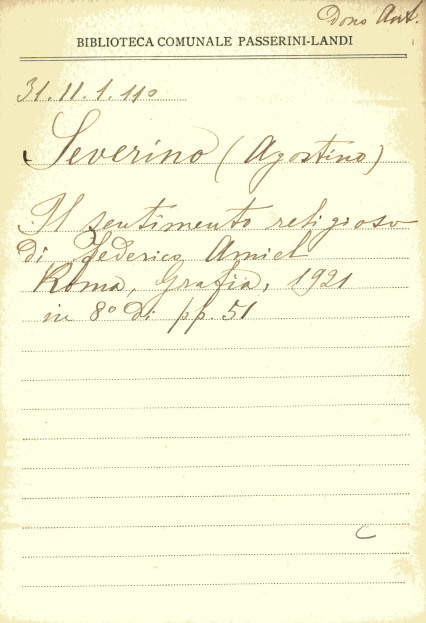 Dono Aut.
BIBLIOTECA COMUNALE PASSERINI-LANDI
31.11.1.110
Severino (Agostino)
Il sentimento religioso
di Federico Amiel
Roma, Grafia, 1921
in 8º di pp. 51
C